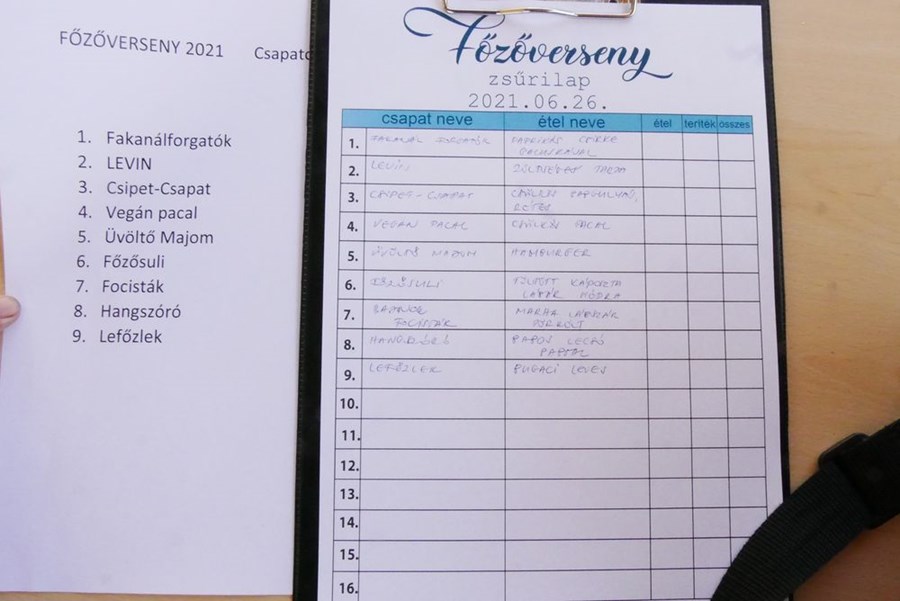 FŐZŐVERSENY 2021 Csapato
1. Fakanálforgatók
2. LEVIN
3. Csipet-Csapat
4. Vegán pacal
5. Üvöltő Majom
6. Főzősuli
7. Focisták
8. Hangszóró
9. Lefőzlek
Főzőverseny
zsűrilap
2021.06.26.
csapat neve étel neve étel teríték összes
1. FAKANÁL FORGATÓK PAPRIKÁS CSIRKE
GALUSKÁVAL
2. LEVIN
3. CSIPET-CSAPAT CSÜLKÖS
4. VEGÁN PACAL CSÜLKÖS PACAL
5. ÜVÖLTŐ MAJOM HAMBURGER
6. FŐZŐSULI TÖLTÖTT KÁPOSZTA
7. FOCISTÁK MARHA LÁBSZÁR
PÖRKÖLT
8. HANGSZÓRÓ LECSÓ
9. LEFŐZLEK LEVES
10.
11.
12.
13.
14.
15.
16.